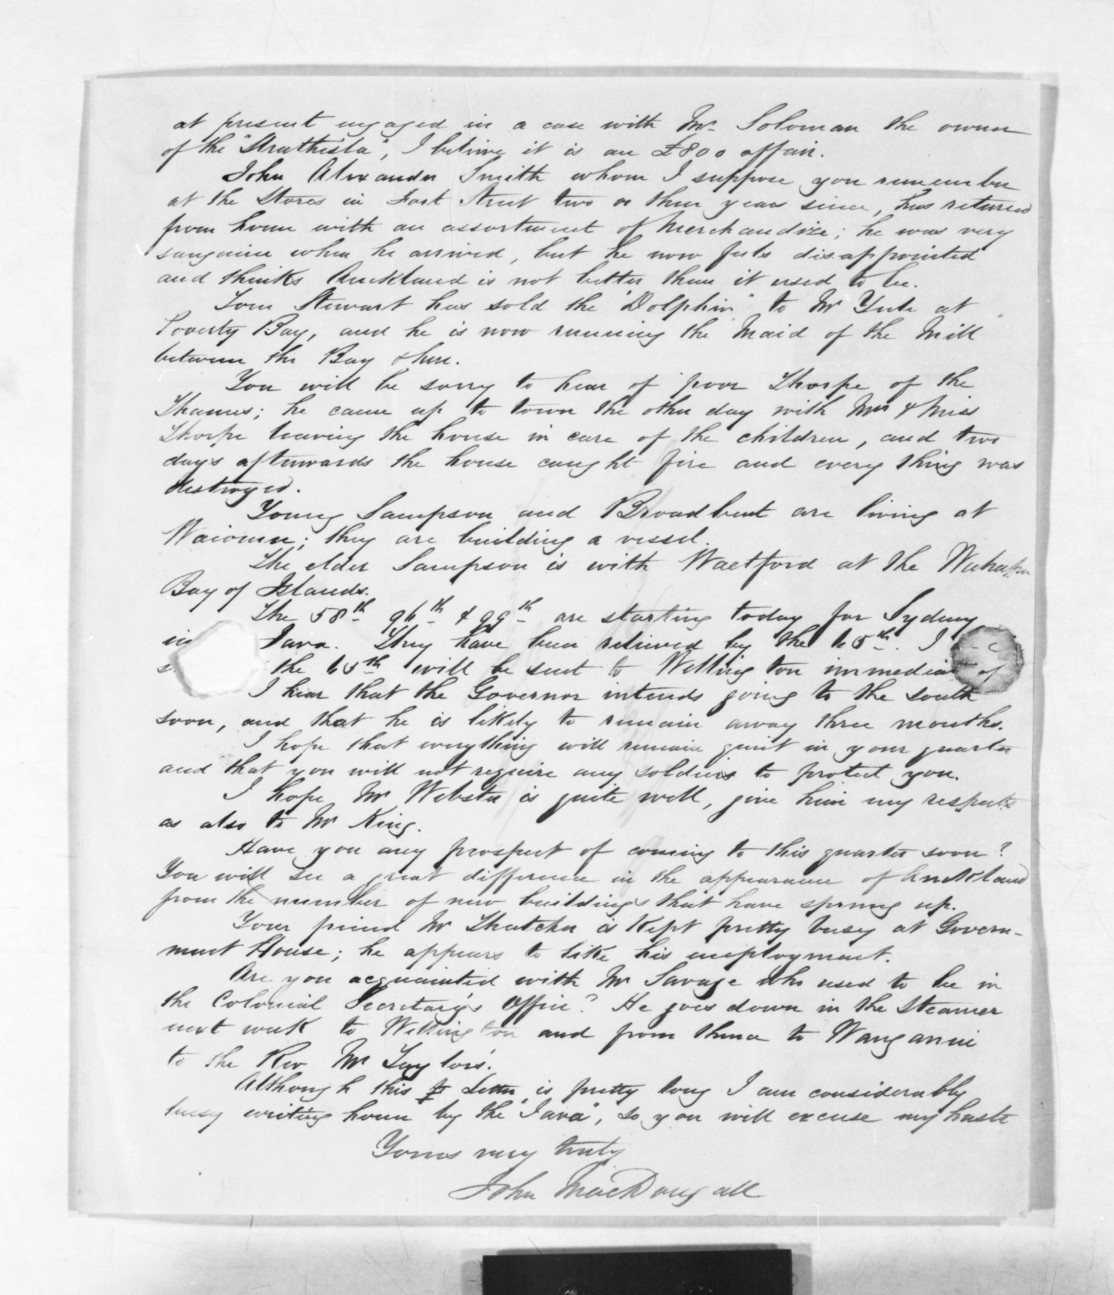 at present engaged in a case with Mr Soloman the owner
of the "Strathisla", I believe it is an £800 affair.
John Alexander Smith whom I suppose you remember
at the Stores in Fort Street two or three years since, has returned
from home with an assortment of Merchandize; he was very
sanguine when he arrived, but he now feels disappointed
and thinks Auckland is not better than it used to be.
Tom Stewart has sold the "Dolphin" to Mr Yule at
Poverty Bay, and he is now running the Maid of the Mill
between the Bay & here.
You will be sorry to hear of poor Thorpe of the
Thames; he came up to town the other day with Mrs & Miss
Thorpe leaving the house in care of the children, and two
days afterwards the house caught fire and every thing was
destroyed.
Young Sampson and Broadbent are living at
they are building a vessel.
The elder Sampson is with Waetford at the
Bay of Islands.
The 58th 96th & 99th are starting today for Sydney
Java. They have been relieved by the 65th. I
the 65th will be sent to Wellington immediately
I hear that the Governor intends going to the south
soon, and that he is likely to remain away three months.
I hope that everything will remain quiet in your quarter
and that you will not require any soldiers to protect you.
I hope Mr Webster is quite well, give him my respects
as also to Mr King.
Have you any prospect of coming to this quarter soon?
You will see a great difference in the appearance of Auckland
from the number of new buildings that have sprung up.
Your friend Mr Thatcher is kept pretty busy at Govern-
ment House; he appears to like his employment.
Are you acquainted with Mr Savage who used to be in
the Colonial Secretary's Office? He goes down in the Steamer
next week to Wellington and from thence to Wanganui
to the Rev Mr Taylors'.
Although this letter is pretty long I am considerably
busy writing home by the "Java", so you will excuse my haste
Yours very truly
John MacDougall